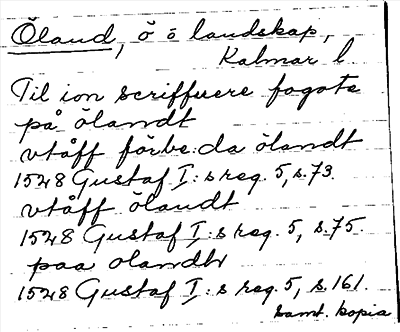 Öland, ö o landskap,
Kalmar l
Til ion scriffuere fogote
på ölandt
vtåff förbe:da ölandt
1528 Gustaf I:s reg. 5, s. 73.
vtåff ölandt
1528 Gustaf I:s reg. 5, s. 75.
paa olandh
1528 Gustaf I:s reg. 5, s. 161.
samt. kopia